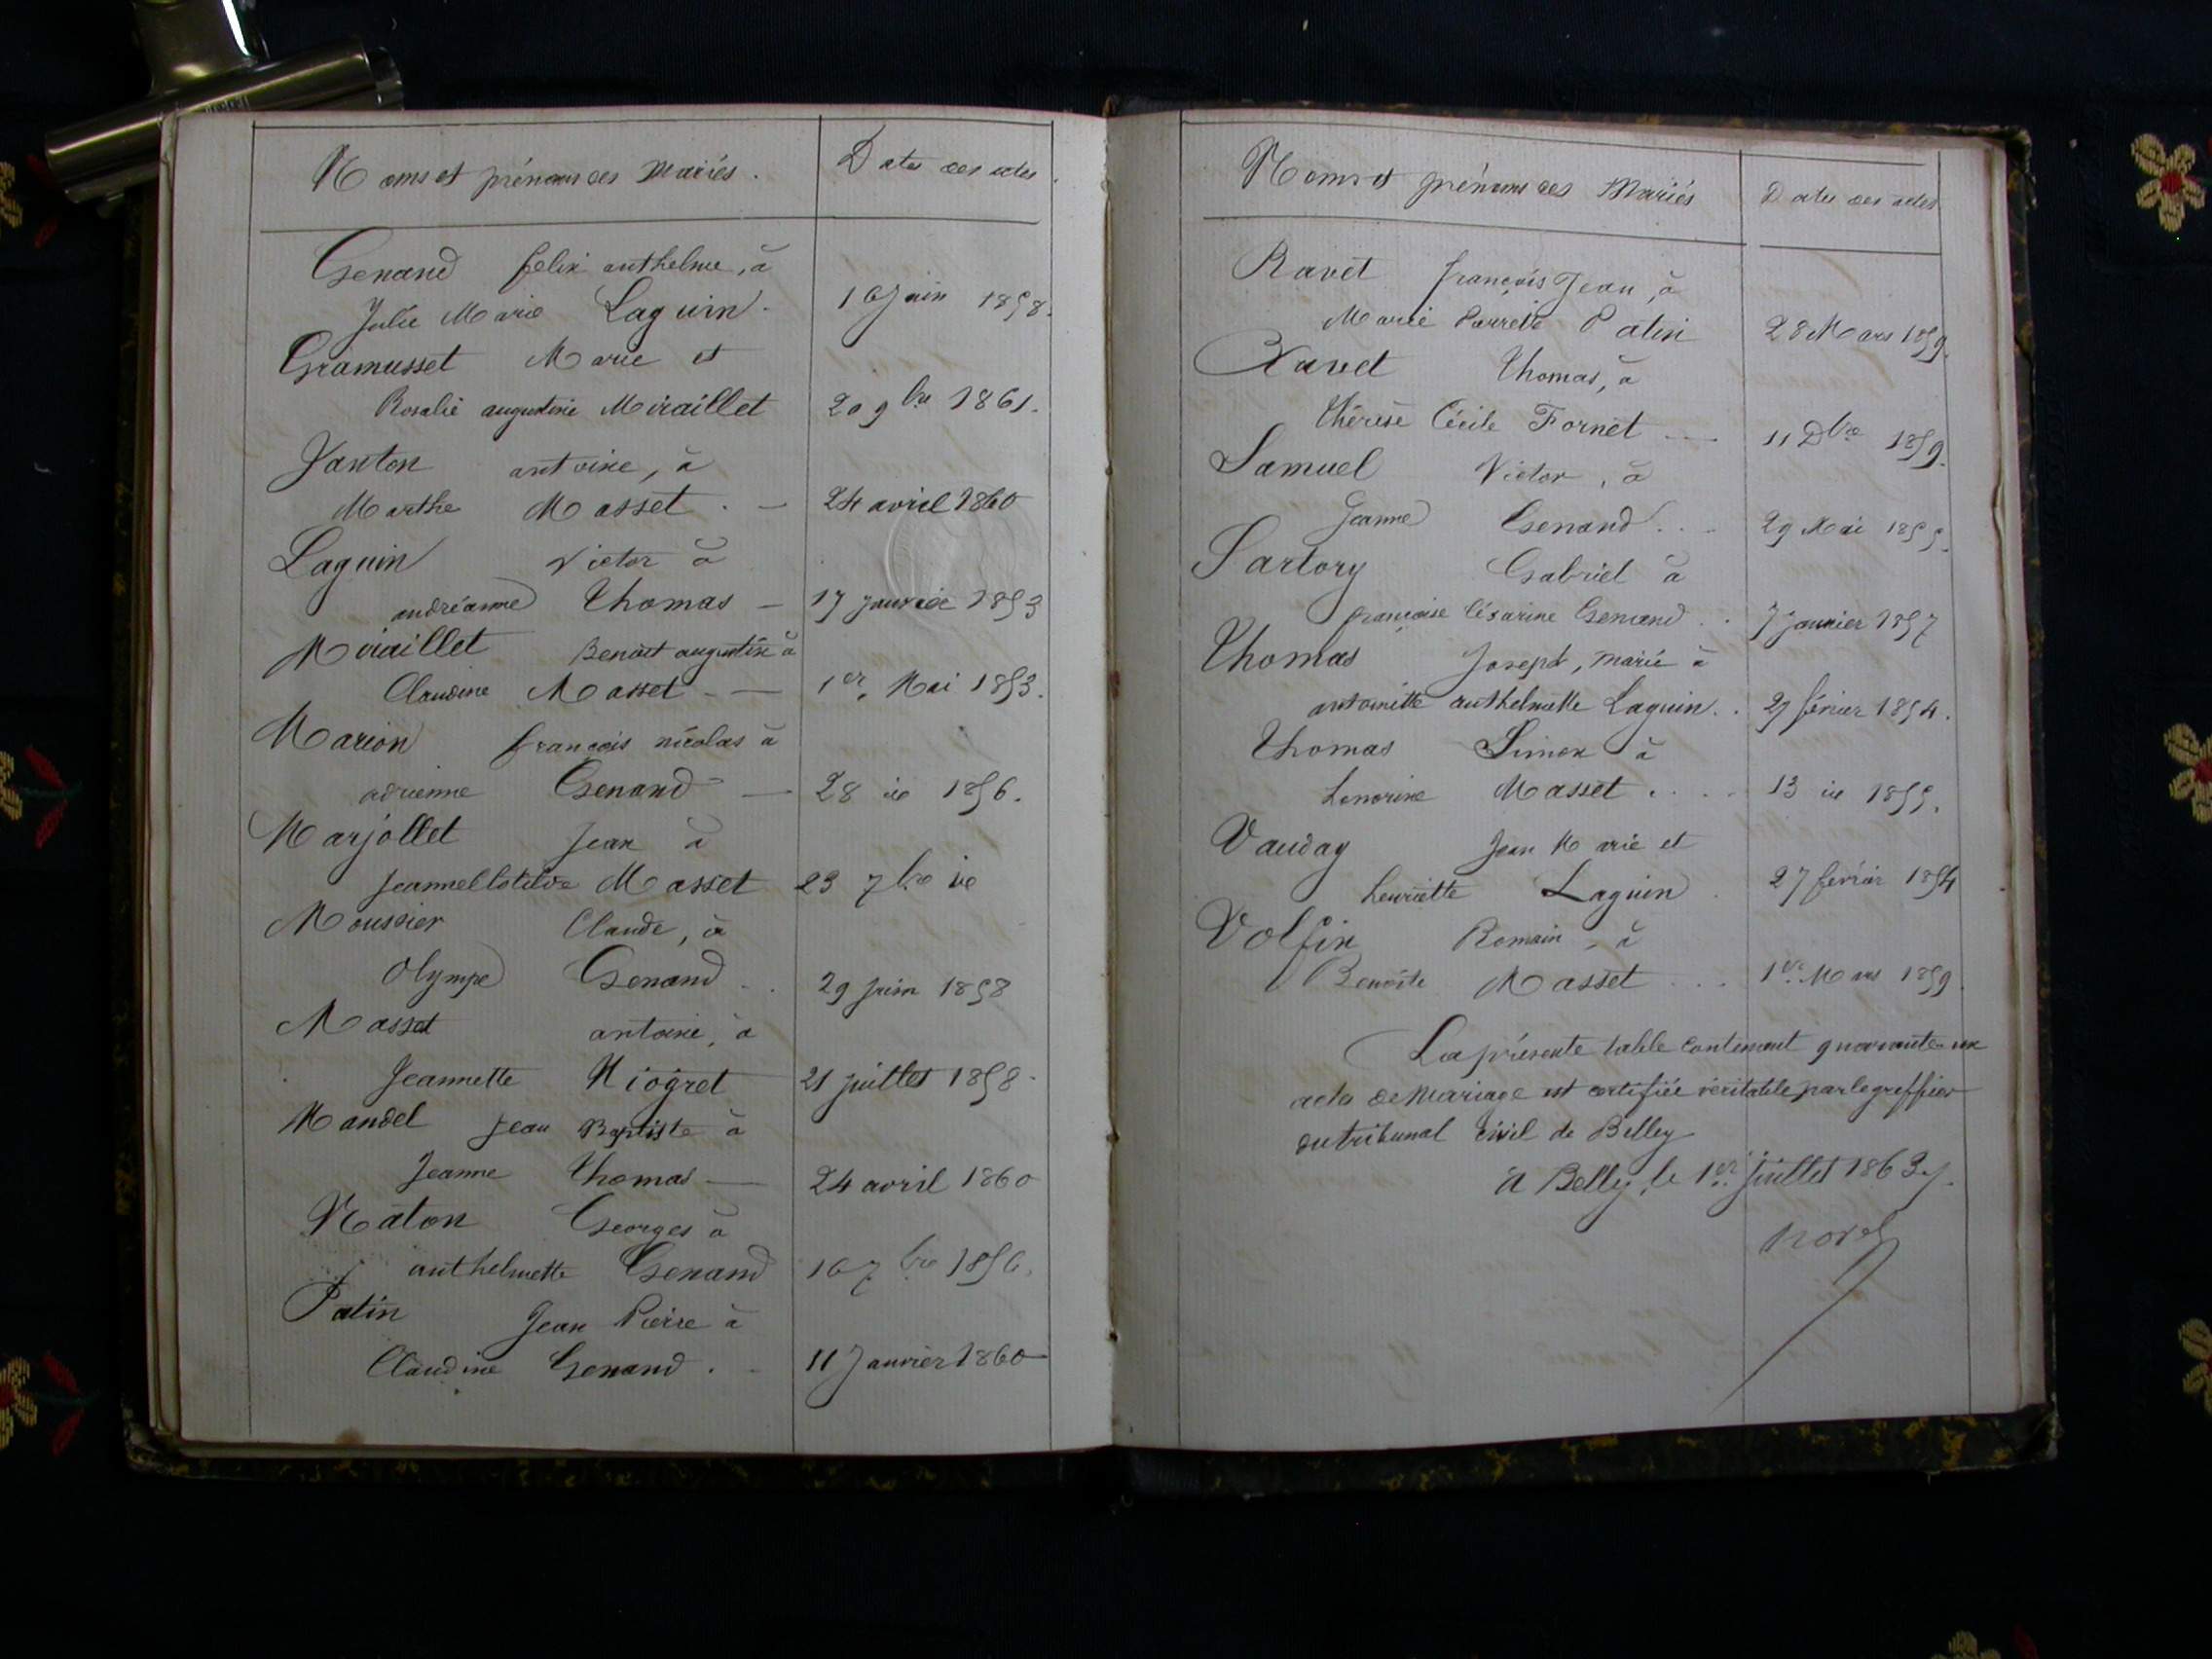 Noms et prénoms des Mariés.
Dates des actes.
Genand felix anthelme, à
Julie Marie Laguin. 16 juin 1858.
Gramusset Marie et
Rosalie augustine Miraillet 20 9bre 1861.
Janton antoine, à
Marthe Masset. — 24 avril 1860
Laguin Victor à
andréanne Thomas — 17 janvier 1853
Miraillet Benoit augustin à
Claudine Masset. — 1er Mai 1853.
Marion françois nicolas à
adrienne Genand — 28 id 1856.
Marjollet Jean à
Jeanne Clotilde Masset 23 7bre id
Moussier Claude, à
Olympe Genand .. 29 juin 1858
Masset antoine, à
Jeannette Niogret 21 juillet 1858.
Mandel Jean Baptiste à
Jeanne Thomas — 24 avril 1860
Naton Georges à
anthelmette Genand 16 7bre 1856.
Patin Jean Pierre à
Claudine Genand . - 11 Janvier 1860
Noms et prénoms des Mariés
Dates des actes
Ravet françois Jean, à
Marie Pierrette Patin 28 Mars 1859.
Ravet Thomas, à
thérèse Cécile Fornet — 11 Dbre 1859.
Samuel Victor, à
Jeanne Genand ... 29 Mai 1855.
Sartory Gabriel à
françoise Césarine Genand .. 7 janvier 1857
Thomas Joseph, marie à
antoinette anthelmette Laguin .. 27 février 1854.
Thomas Simon à
Lenorine Masset .... 13 id 1855.
Vauday Jean Marie et
henriette Laguin . 27 février 1854
Volfin Romain, à
Benoite Masset ... 1er Mars 1859.
La présente table contenant quarante un
actes de Mariage est certifiée véritable par le greffier
du tribunal civil de Belley
à Belley, le 1er Juillet 1863.